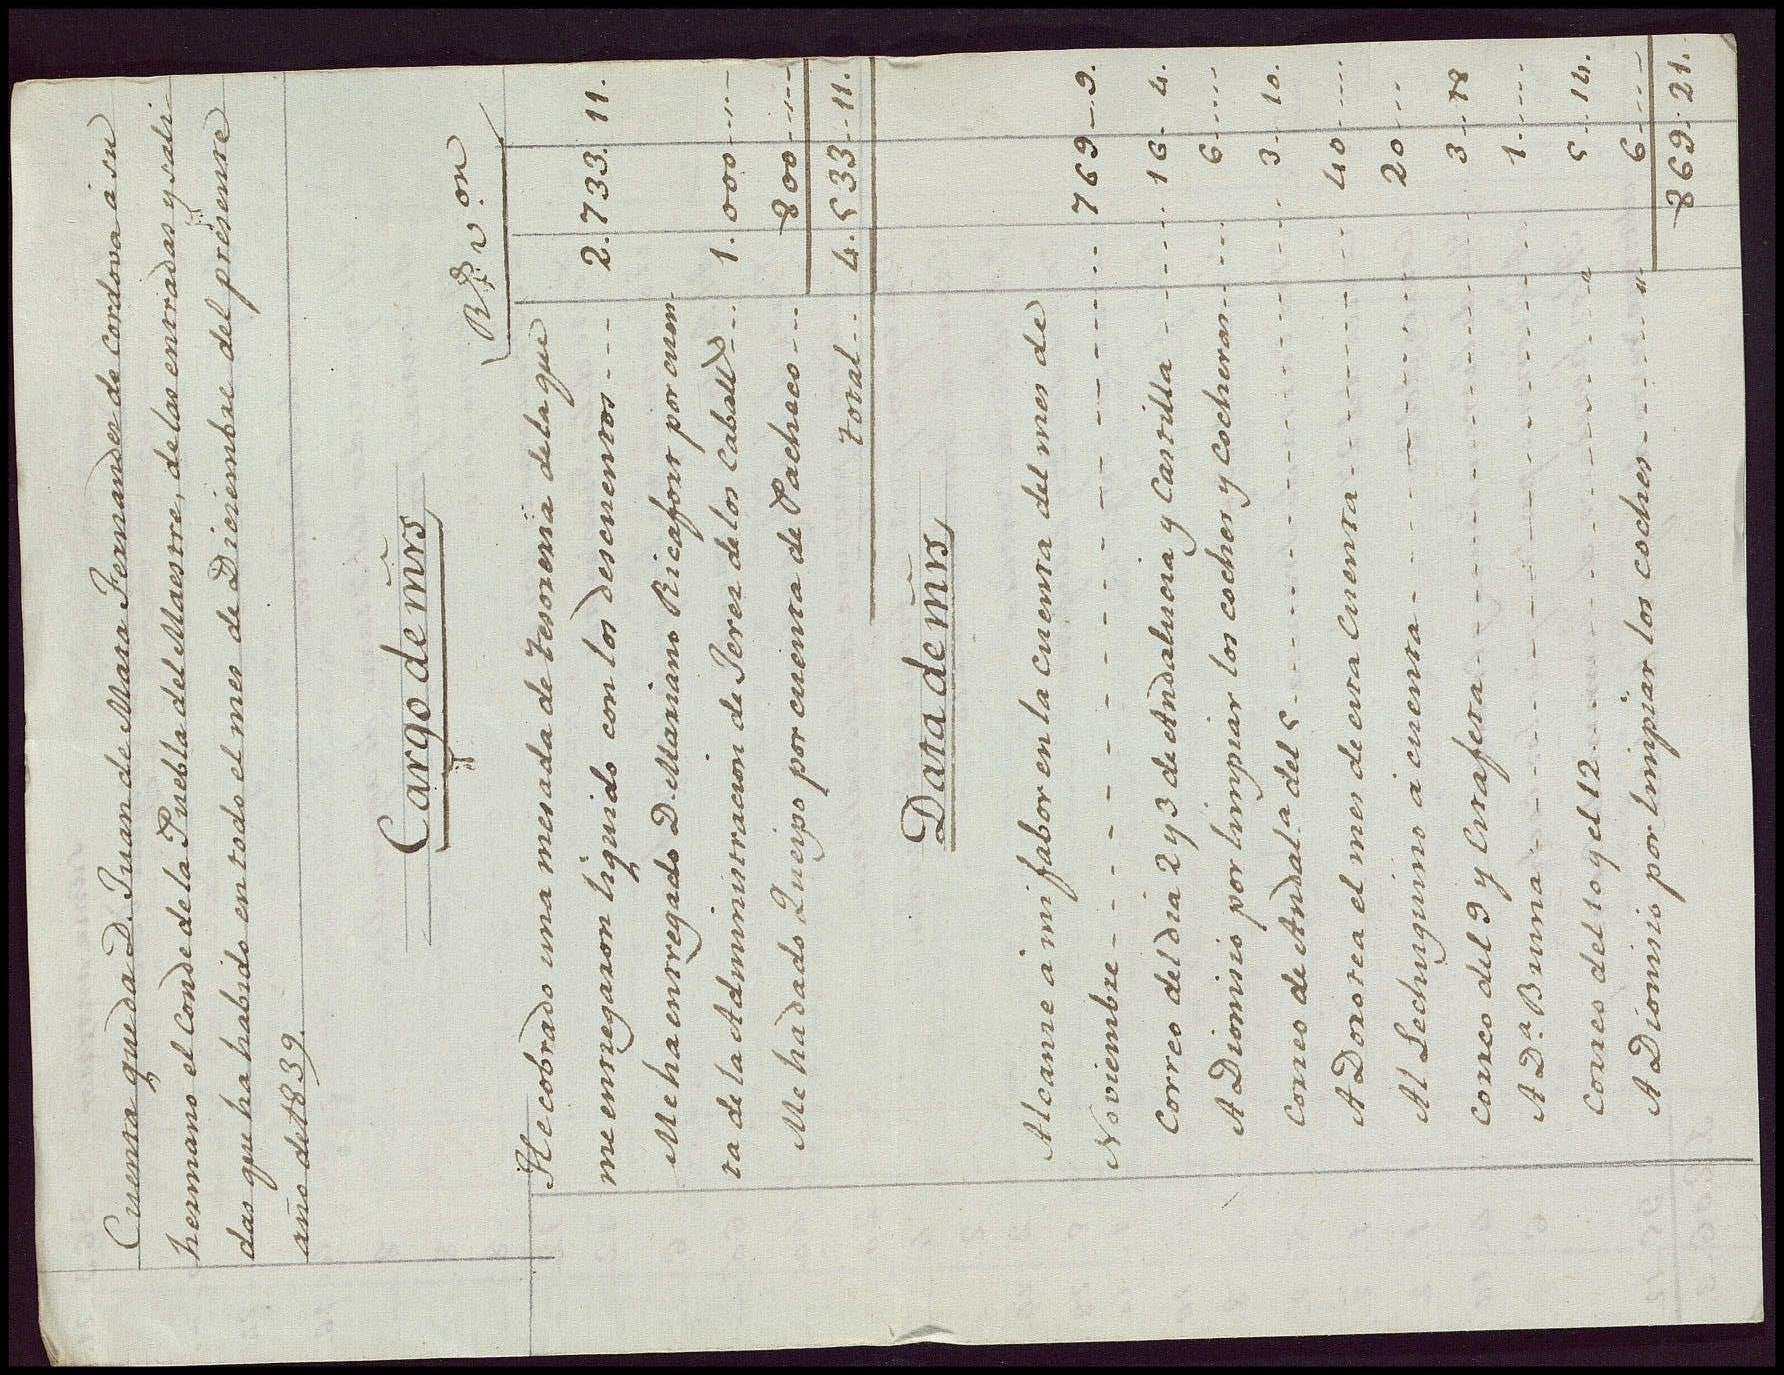 Cuenta que da D. Juan de Mata Fernandez de Cordova á su
hermano el Conde de la Puebla del Maestre, de las entradas y sali-
das que ha habido en todo el mes de Diciembre del presente
año de 1839.
Cargo de mrs
Rs. von
He cobrado una mesada de Tesoreria de la que
me entregaron liquido con los descuentos --- 2.733. 11.
Me ha entregado D. Mariano Ricafort por cuen-
ta de la Administracion de Jerez de los Caballs --- 1.000 ---
Me ha dado Queipo por cuenta de Pacheco --- 800 ---
Total -- 4.533 -- 11.
Data de mrs
Alcance á mi fabor en la cuenta del mes de
Noviembre --- 769 -- 9.
Correo del dia 2 y 3 de Andalucia y Castilla --- 16 -- 4.
A Dionisio por limpiar los coches y cocheras --- 6 ---
Correo de Andala del 5 --- 3 -- 10.
A Dorotea el mes de esta Cuenta --- 40 ---
Al Lechuguino á cuenta --- 20 ---
Correo del 9 y Estafeta --- 3 -- 18
A Da. Bruna --- 1 ---
Correo del 10 y el 12 --- 5 -- 14.
A Dionisio por limpiar los coches --- 6 ---
869. 21.